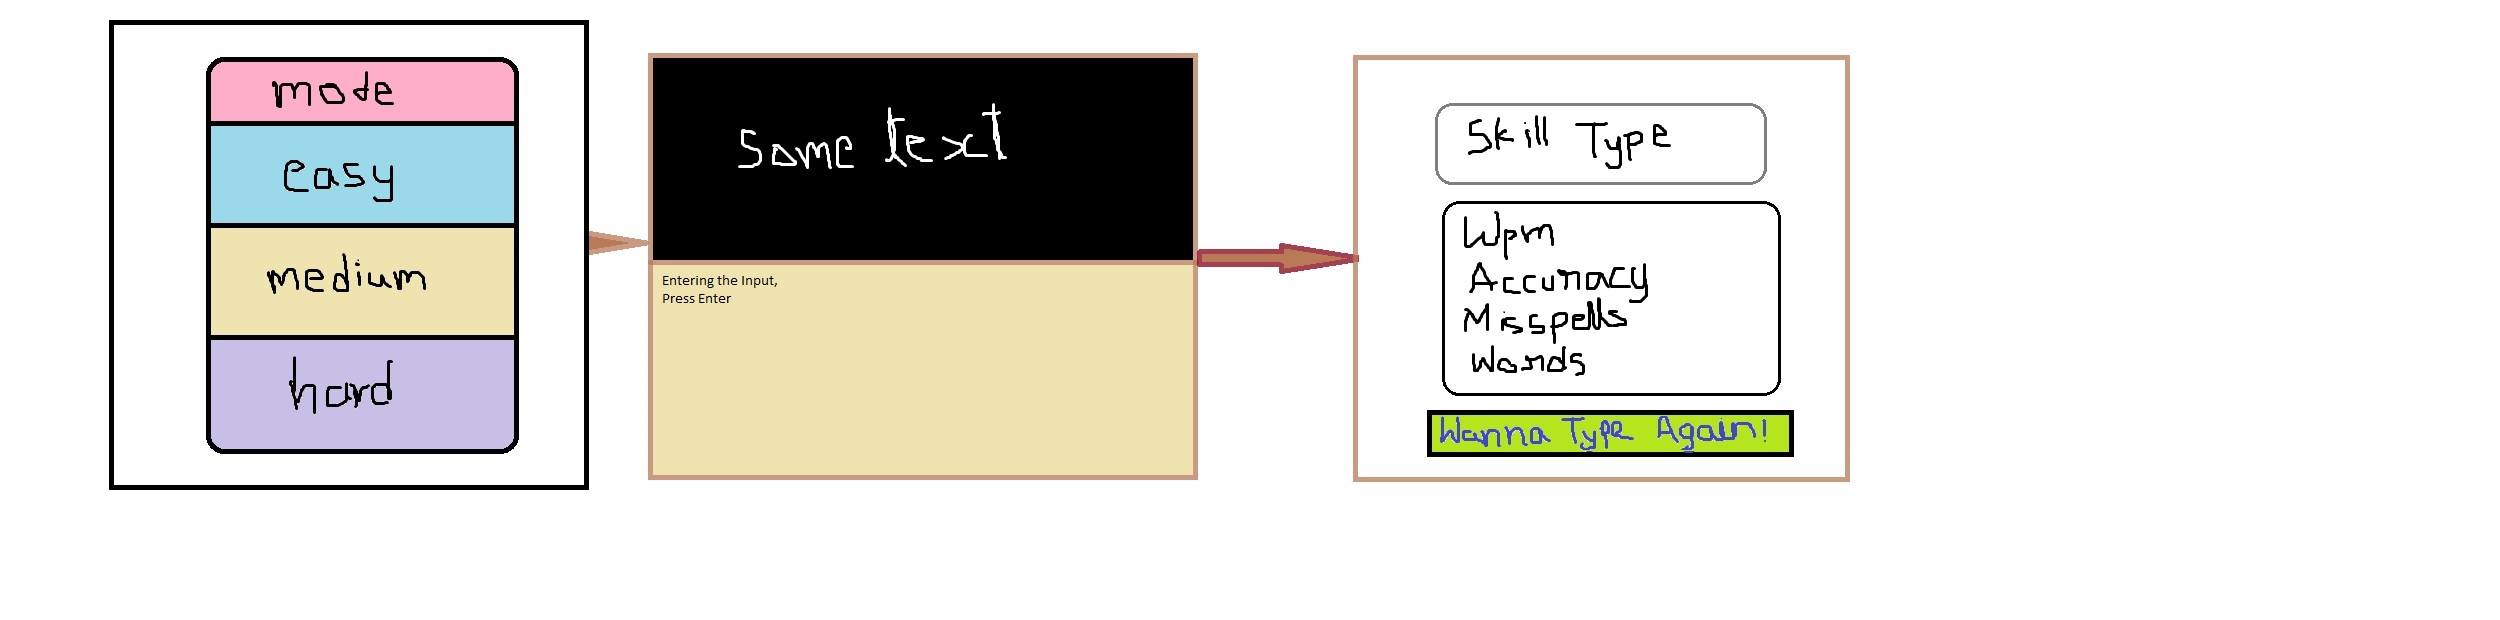 mode
easy
medium
hard
Some text
Entering the Input,
Press Enter
Skill Type
Wpm
Accuracy
Misspells
Words
Wanna Type Again!